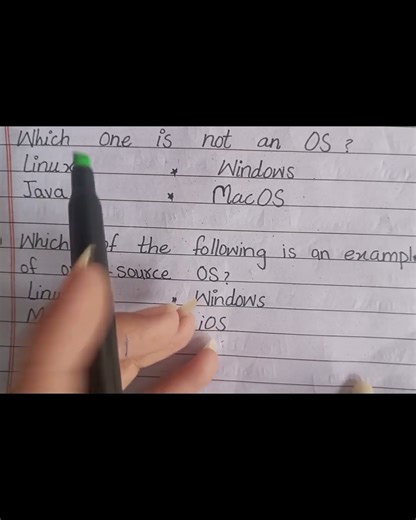 Which one is not an OS?
Linux * Windows
Java * MacOS
Which of the following is an example
of source OS?
Windows
iOS